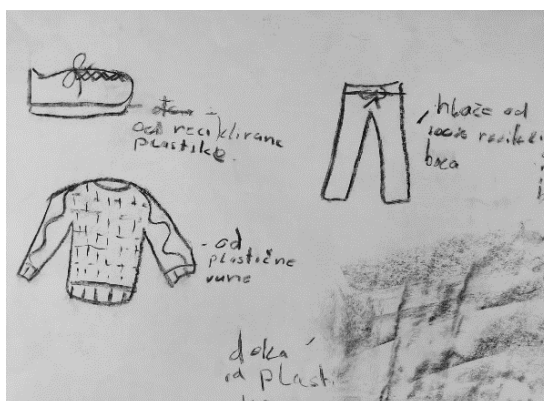 od reciklirane
plastike.
hlače od
100% recikli
- od
plastične
vune
d
od plasti